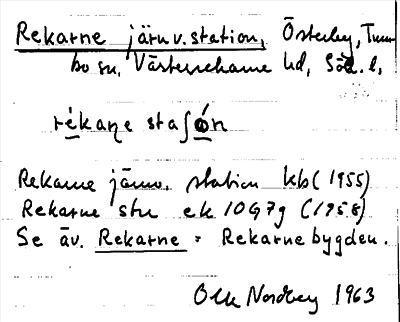 Rekarne järnv.station, Österby, Tum-
bo sn, Västerrekarne hd, Söd. l,
rékaṇe staʃón
Rekarne järnv. station kb (1955)
Rekarne stn ek 10G7g (1958)
Se äv. Rekarne = Rekarnebygden.
Olle Nordberg 1963